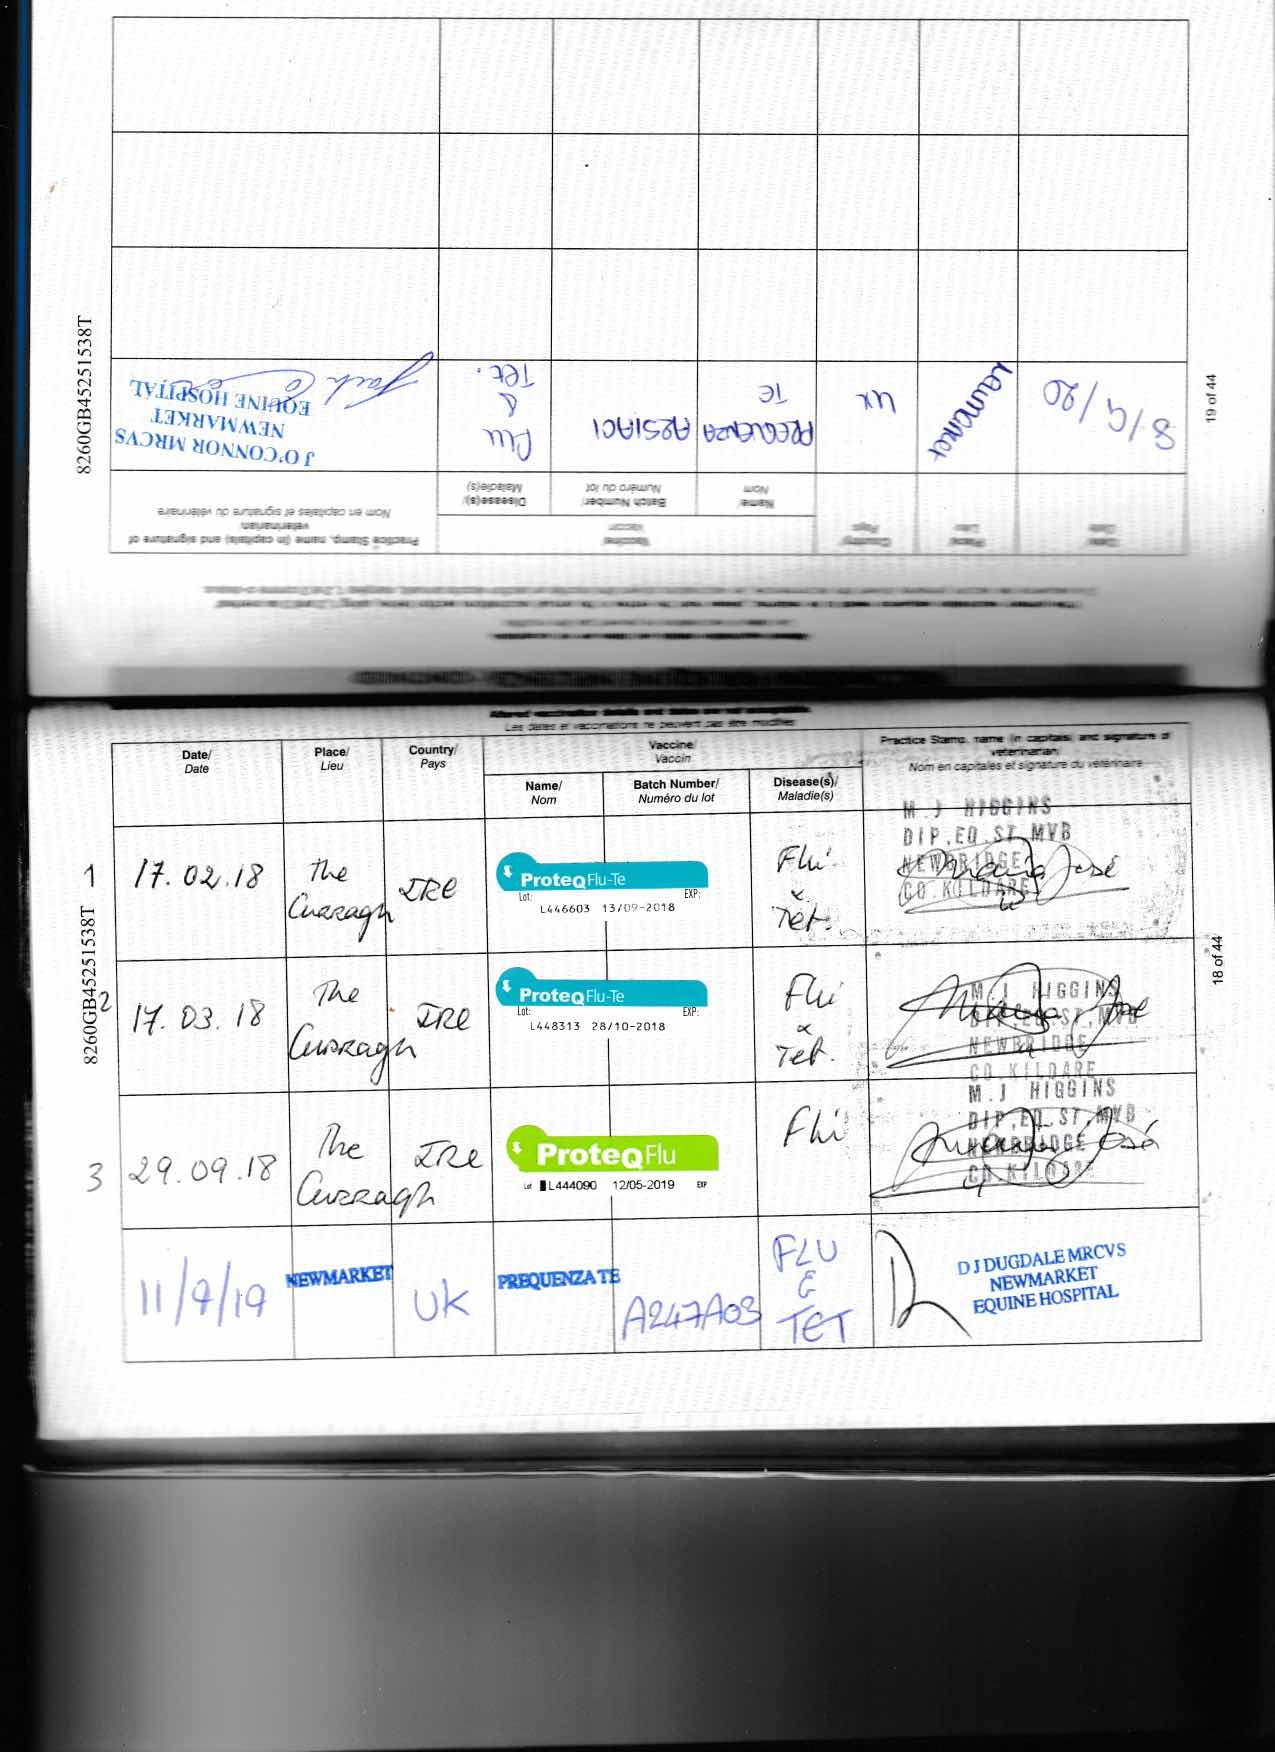 Altered vaccination details and dates are not acceptable.
Les dates et vaccinations ne peuvent pas être modifiés
Date/
Date
Place/
Lieu
Country/
Pays
Vaccine/
Vaccin
Practice Stamp, name (in capitals) and signature of
veterinarian
Nom en capitales et signature du vétérinaire
Name/
Nom
Batch Number/
Numéro du lot
Disease(s)/
Maladie(s)
1
17.02.18
The
Curragh
IRE
ProteqFlu-Te
Lot:
EXP:
L446603 13/09-2018
Flu
&
Tet.
M.J HIGGINS
DIP.EQ.ST.MVB
NEWBRIDGE
CO.KILDARE
2
17.03.18
The
Curragh
IRE
ProteqFlu-Te
Lot:
EXP:
L448313 28/10-2018
Flu
&
Tet.
M.J HIGGINS
DIP.EQ.ST.MVB
NEWBRIDGE
CO.KILDARE
3
29.09.18
The
Curragh
IRE
ProteqFlu
Lot L444090 12/05-2019 EXP
Flu
M.J HIGGINS
DIP.EQ.ST.MVB
NEWBRIDGE
CO.KILDARE
11/9/19
NEWMARKET
UK
PREQUENZA TE
A247A03
FLU
&
TET
D J DUGDALE MRCVS
NEWMARKET
EQUINE HOSPITAL
8260GB45251538T
18 of 44
Date
Date
Place
Lieu
Country
Pays
Vaccine
Vaccin
Practice Stamp, name (in capitals) and signature of
veterinarian
Nom en capitales et signature du vétérinaire
Name
Nom
Batch Number/
Numéro du lot
Disease(s)/
Maladie(s)
Newmarket
UK
PREQUENZA
TE
A251AC1
Flu
&
Tet.
J O'CONNOR MRCVS
NEWMARKET
EQUINE HOSPITAL
8260GB45251538T
19 of 44